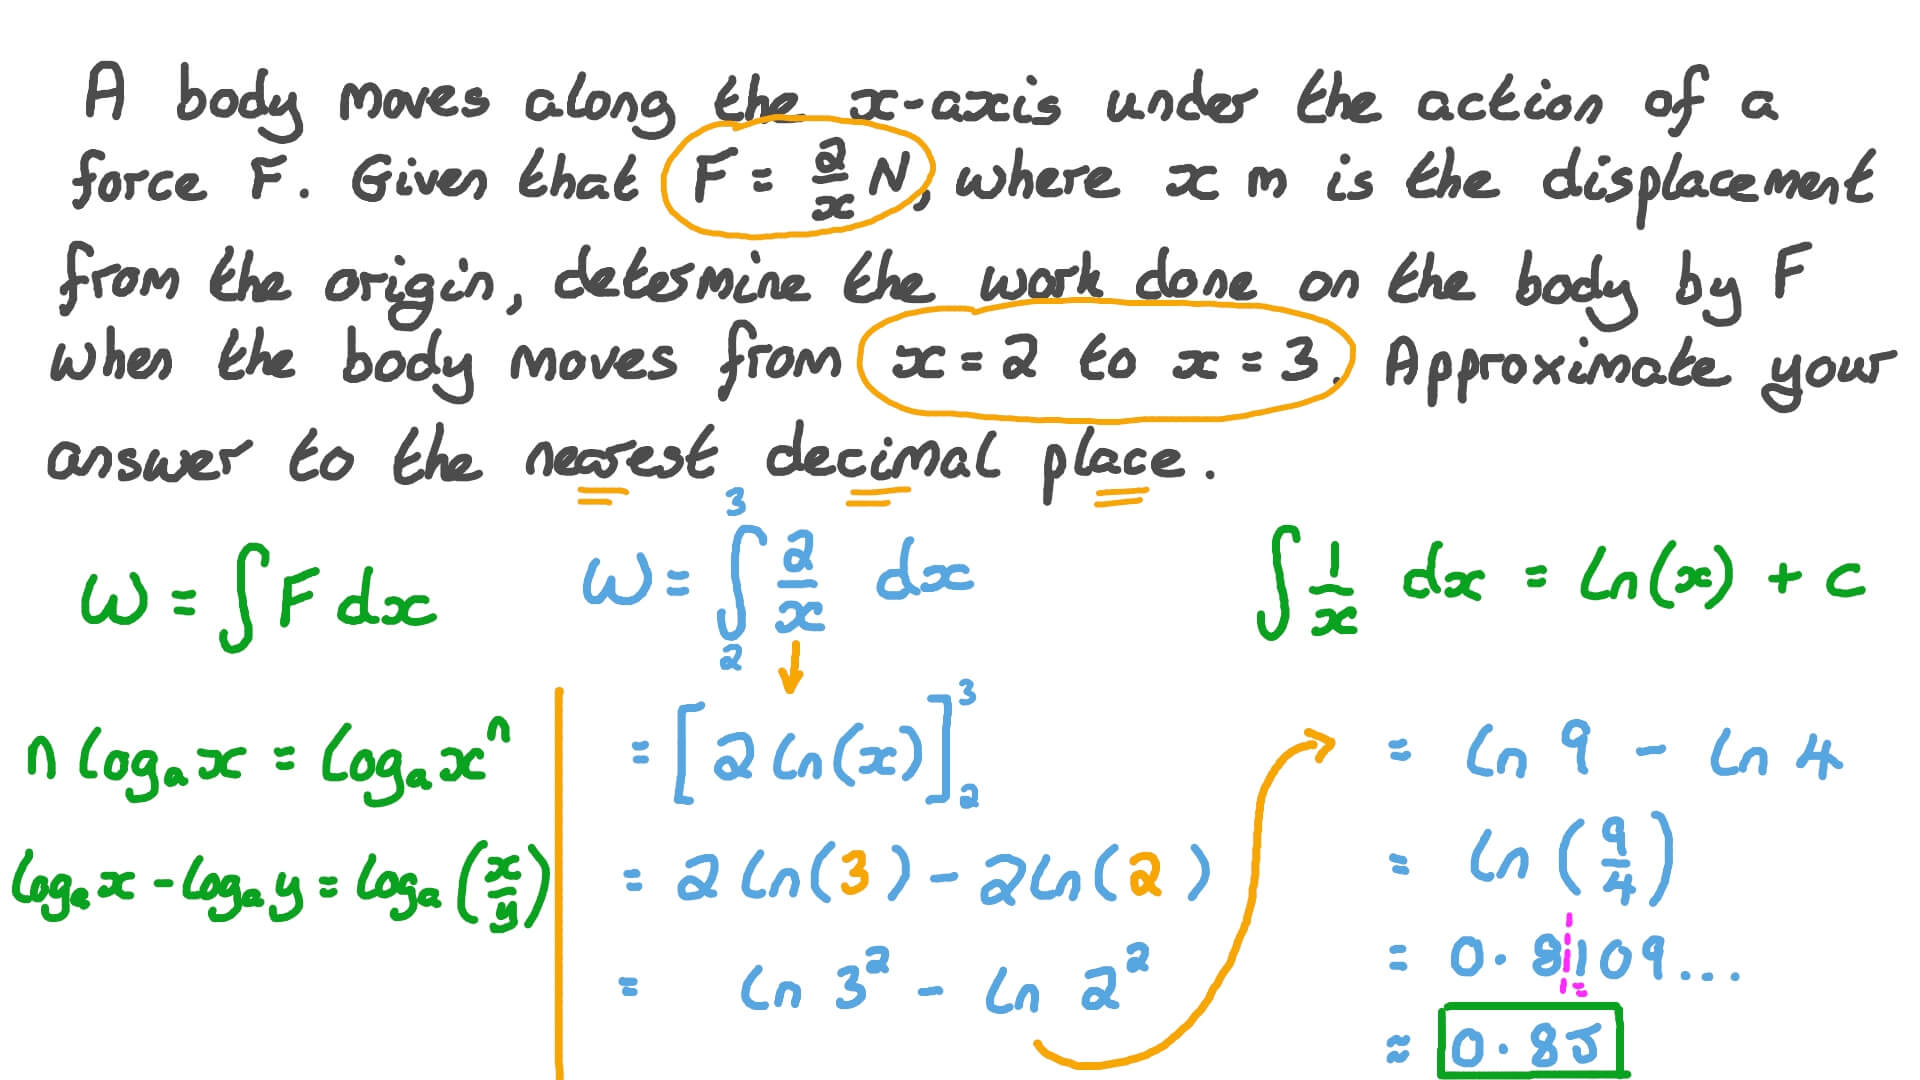 A body moves along the x-axis under the action of a
force F. Given that F = 2/x N, where x m is the displacement
from the origin, determine the work done on the body by F
when the body moves from x = 2 to x = 3. Approximate your
answer to the nearest decimal place.
W = ∫ F dx
W = ∫₂³ 2/x dx
∫ 1/x dx = ln(x) + c
n logₐ x = logₐ xⁿ
logₐ x - logₐ y = logₐ (x/y)
= [2 ln(x)]₂³
= 2 ln(3) - 2 ln(2)
= ln 3² - ln 2²
= ln 9 - ln 4
= ln (9/4)
= 0.8109...
≈ 0.8J